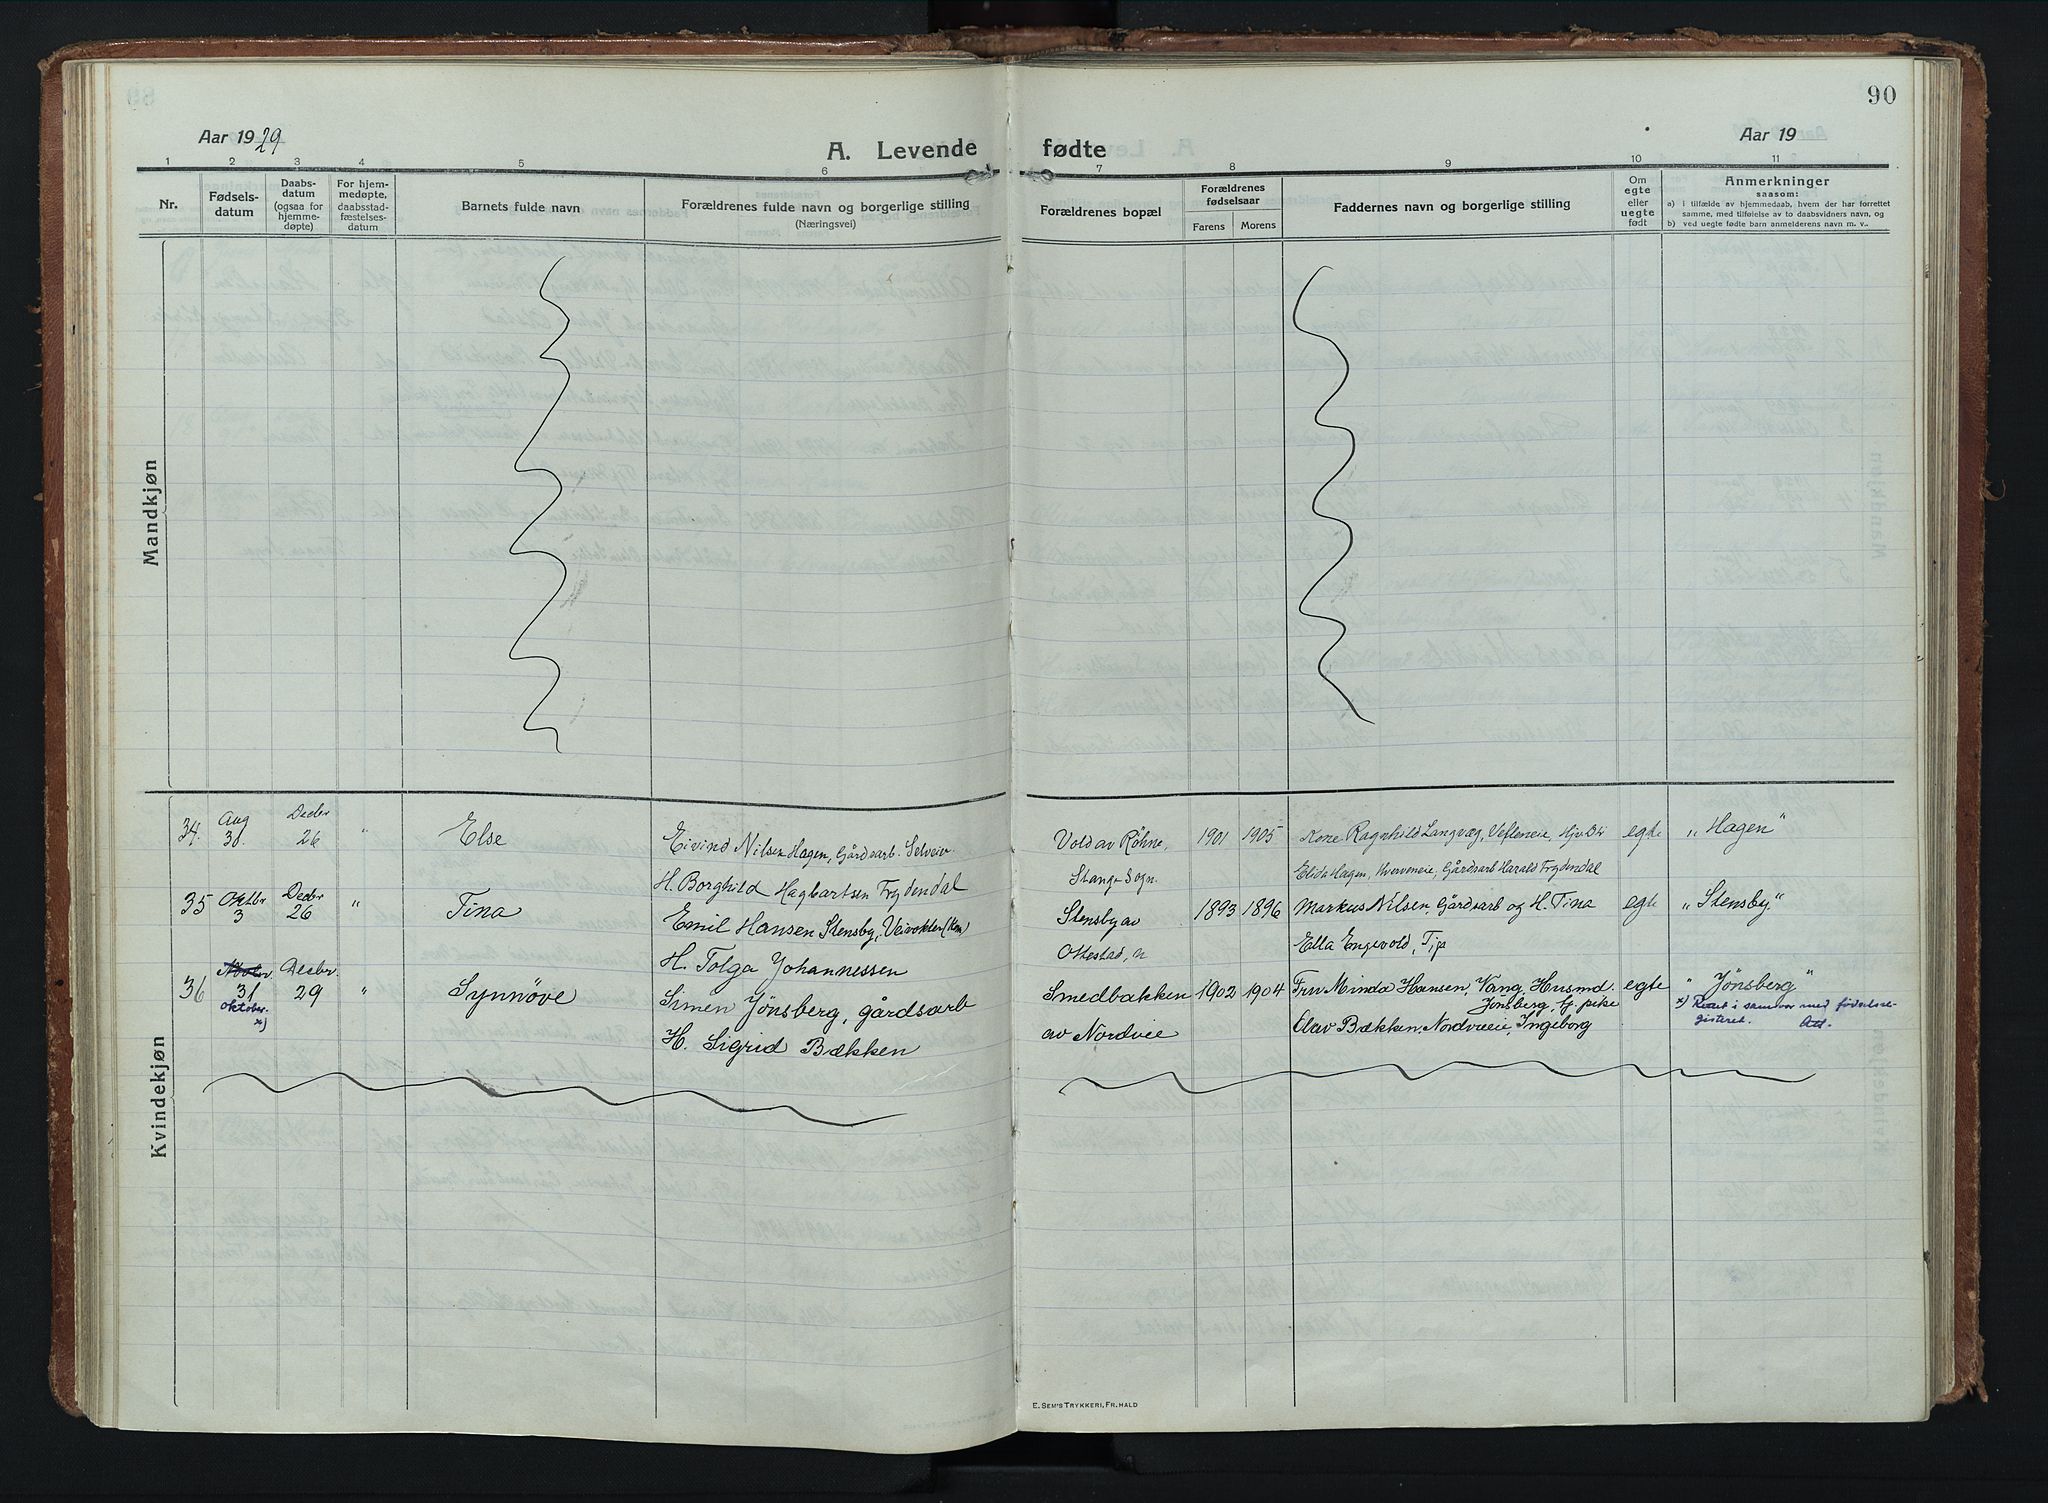 90
Aar 1929
A. Levende fødte
Aar 19
1 2 3 4 5 6 7 8 9 10 11
Nr.
Fødsels-
datum
Daabs-
datum
(ogsaa for
hjemme-
døpte)
For hjem-
medøpte,
daabsstad-
fæstelses-
datum
Barnets fulde navn
Forældrenes fulde navn og borgerlige stilling
(Næringsvei)
Forældrenes bopæl
Forældrenes
fødselsaar
Farens Morens
Faddernes navn og borgerlige stilling
Om
egte
eller
uegte
født
Anmerkninger
saasom:
a) I tilfælde av hjemmedaab, hvem der har forrettet
samme, med tilføielse av to daabsvidners navn, og
b) ved uegte fødte barn anmelderens navn m. v..
Mandkjøn
Kvindekjøn
34. Aug 30. Decbr 26 " Else
Eivind Nilsen Hagen, Gårdsarb. Selveier
H. Borghild Hagbartsen Frydendal
Vold av Røhne,
Stange Sogn.
1901 1905
Kone Ragnhild Langvæg, Vefleneie,
Elida Hagen, Kverveneie, Gårdsarb Harald Frydendal
egte
"Hagen"
35 Oktbr 3 Decbr 26 " Tina
Emil Hansen Stensby, Veivokter
H. Tolga Johannessen
Stensby av
Ottestad, n
1893 1896
Markus Nilsen, Gårdsarb og H. Tina
Ella Engevold,
egte
"Stensby"
36 Novbr 31 Oktober x) Decbr. 29 " Synnøve
Simen Jønsberg, gårdsarb
H. Sigrid Bækken
Smedbakken
av Nordvie
1902 1904
Fru Minda Hansen, Vang, Husmd.
Jønsberg, G. pike
Olav Bækken, Nordvieeie, Ingeborg
egte
"Jønsberg"
x) Rettet i samsvar med fødselsre-
gisteret.
E. SEM'S TRYKKERI, FR.HALD